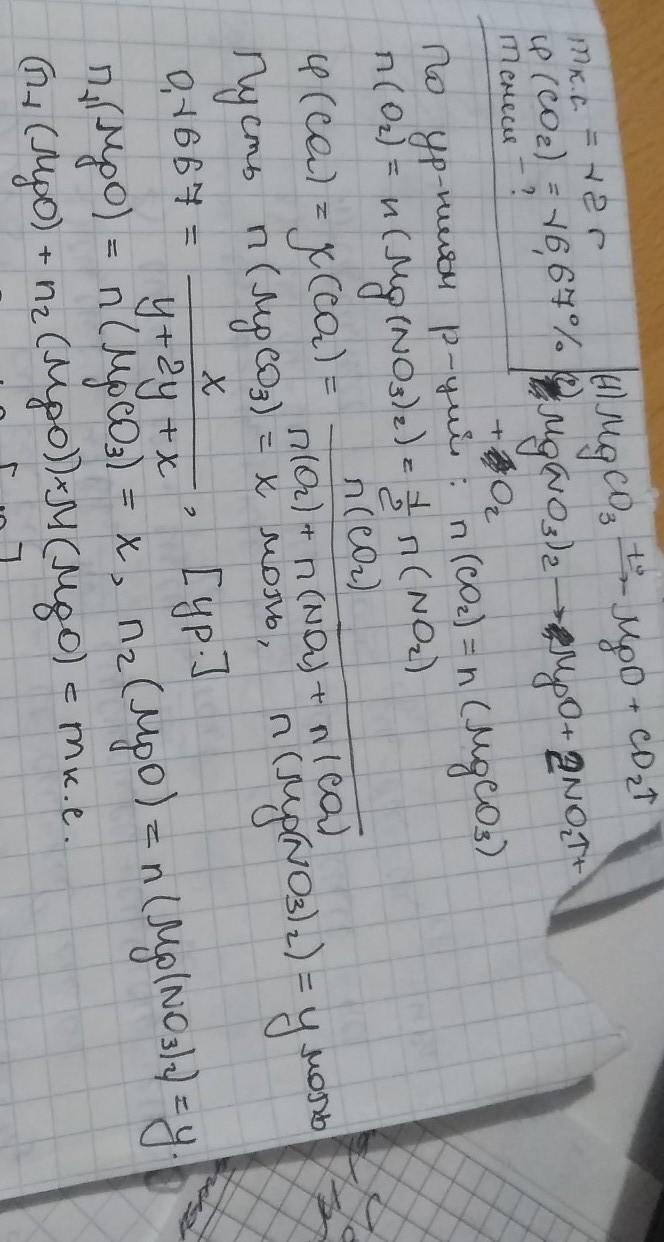 mк.с. = 12 г
φ(CO₂) = 16,67%
mсмеси – ?
(1) MgCO₃ →t° MgO + CO₂↑
Mg(NO₃)₂ → MgO + 2NO₂↑ +
+ O₂
По ур-ниям р-ций: n(CO₂) = n(MgCO₃)
n(O₂) = n(Mg(NO₃)₂) = 1/2 n(NO₂)
φ(CO₂) = χ(CO₂) = n(CO₂) / n(O₂) + n(NO₂) + n(CO₂)
Пусть n(MgCO₃) = x моль, n(Mg(NO₃)₂) = y моль
0,1667 = x / y + 2y + x , [ур.]
n₁(MgO) = n(MgCO₃) = x, n₂(MgO) = n(Mg(NO₃)₂) = y.
(n₁(MgO) + n₂(MgO))×M(MgO) = mк.с.